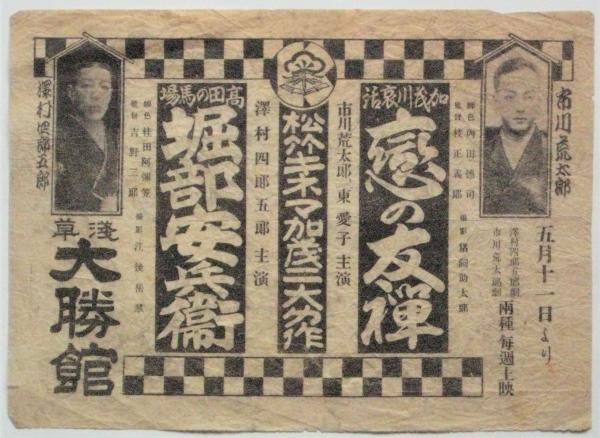 市川荒太郎
五月十一日より
澤村四郎五郎劇
市川荒太郎劇
兩種每週上映
加茂川哀話
戀の友禪
監督 枝正義郎
市川荒太郎 東愛子 主演
松竹キネマ加茂二大力作
澤村四郎五郎主演
高田の馬場
堀部安兵衞
脚色 桂田阿彌笠
監督 吉野二郎
澤村四郎五郎
淺草
大勝館